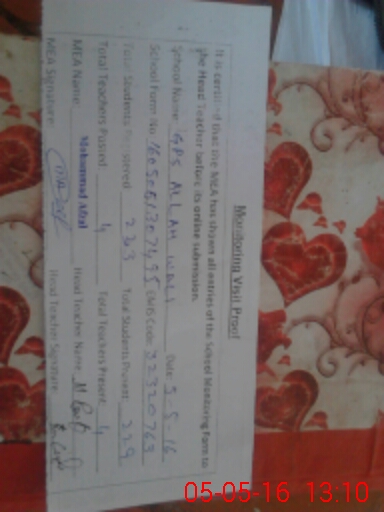 Monitoring Visit Proof
It is certified that the MEA has shown all entries of the School Monitoring Form to
the Head Teacher before its online submission.
School Name GPS ALLAH WALI Date 5-5-16
School Form No EMIS Code 32320763
Total Students Registered 243 Total Students Present 229
Total Teachers Posted 4 Total Teachers Present 4
MEA Name: Mohammad Afzal Head Teacher Name
MEA Signature Head Teacher Signature
05-05-16 13:10